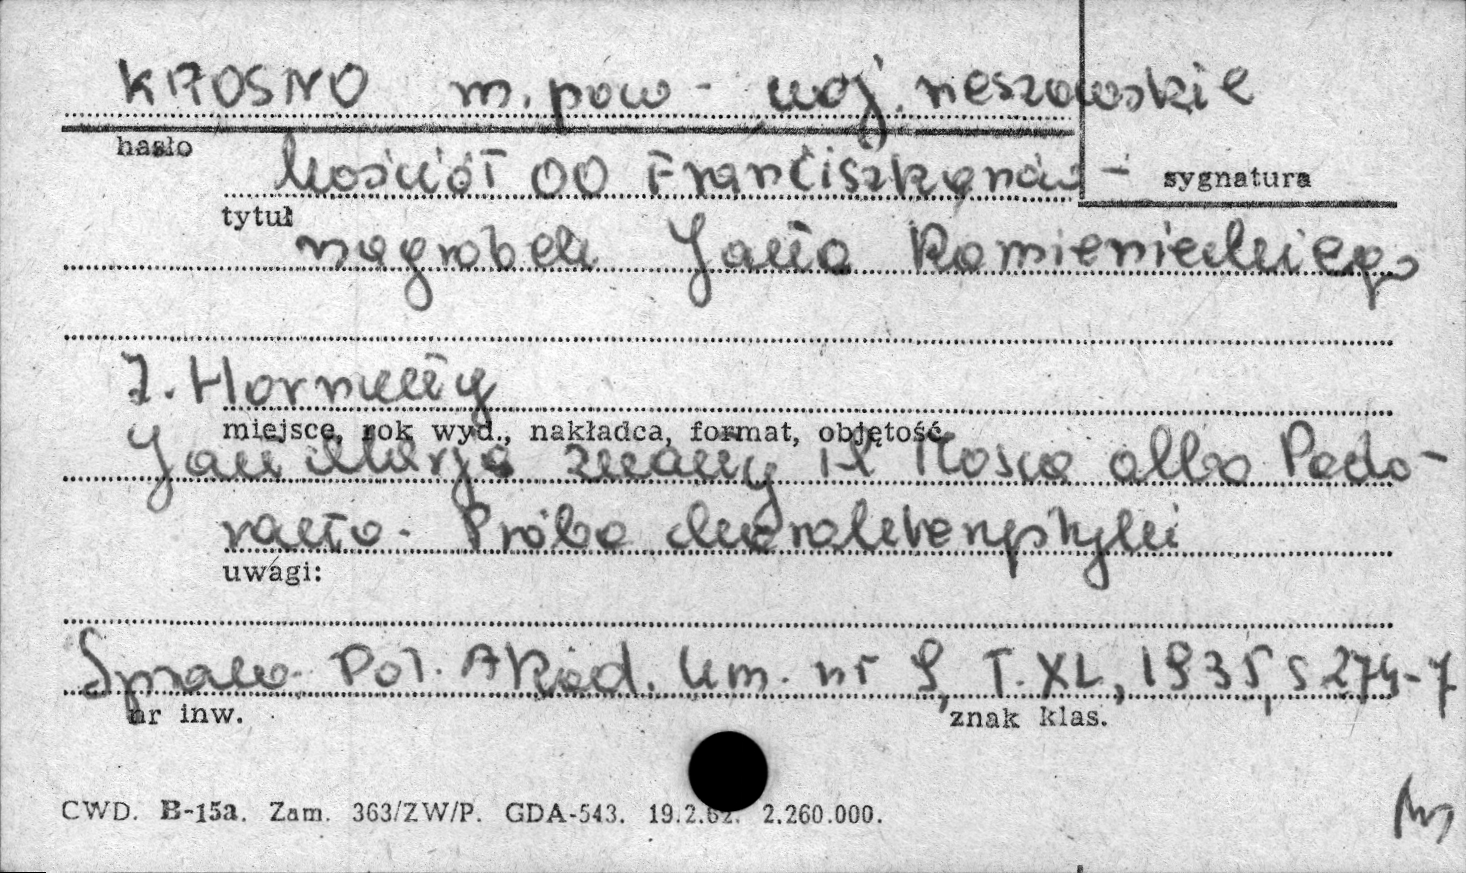 KROSNO m. pow - woj. rzeszowskie
hasło
Kościół OO Franciszkanów - sygnatura
tytuł
nagrobek Jana Kamienieckiego
J. Hornung
miejsce, rok wyd., nakładca, format, objętość
Jan Maria znany il Mosca albo Pado-
vano. Próba charakterystyki
uwagi:
Spraw. Pol. Akad. Um. nr 9, T. XL, 1935, s 274-7
nr inw. znak klas.
CWD. B-15a. Zam. 363/ZW/P. GDA-543. 19.2.62. 2.260.000.